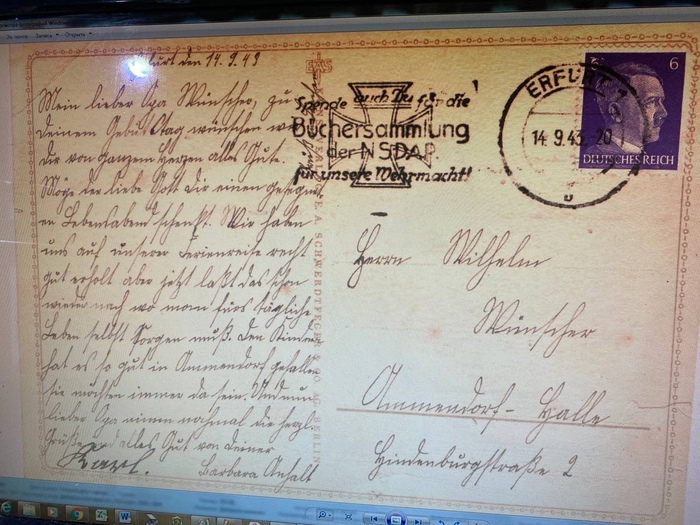 Erfurt den 14.9.43
Mein lieber Opa Wünscher, zu
deinem Geburtstag wünschen wir
dir von ganzem Herzen alles Gute.
Möge der liebe Gott dir einen gesegnet
en Lebensabend schenkt. Wir haben
uns auf unserer Ferienreise recht
gut erholt aber jetzt läßt das schon
wieder nach wo man fürs tägliche
Leben selbst Sorgen muß. Den Kindern
hat es so gut in Ammendorf gefallen
sie möchten immer da sein. Und nun
lieber Opa nimm nochmal die herzl.
Grüße und alles Gut von deiner
Barbara Anhalt
EAS
E.A. SCHWERDTFEGER & CO. AG BERLIN
Spende auch Du für die
Büchersammlung
der NSDAP.
für unsere Wehrmacht!
ERFURT 1
14.9.43. 20
6
DEUTSCHES REICH
Herrn Wilhelm
Wünscher
Ammendorf-Halle
Hindenburgstraße 2